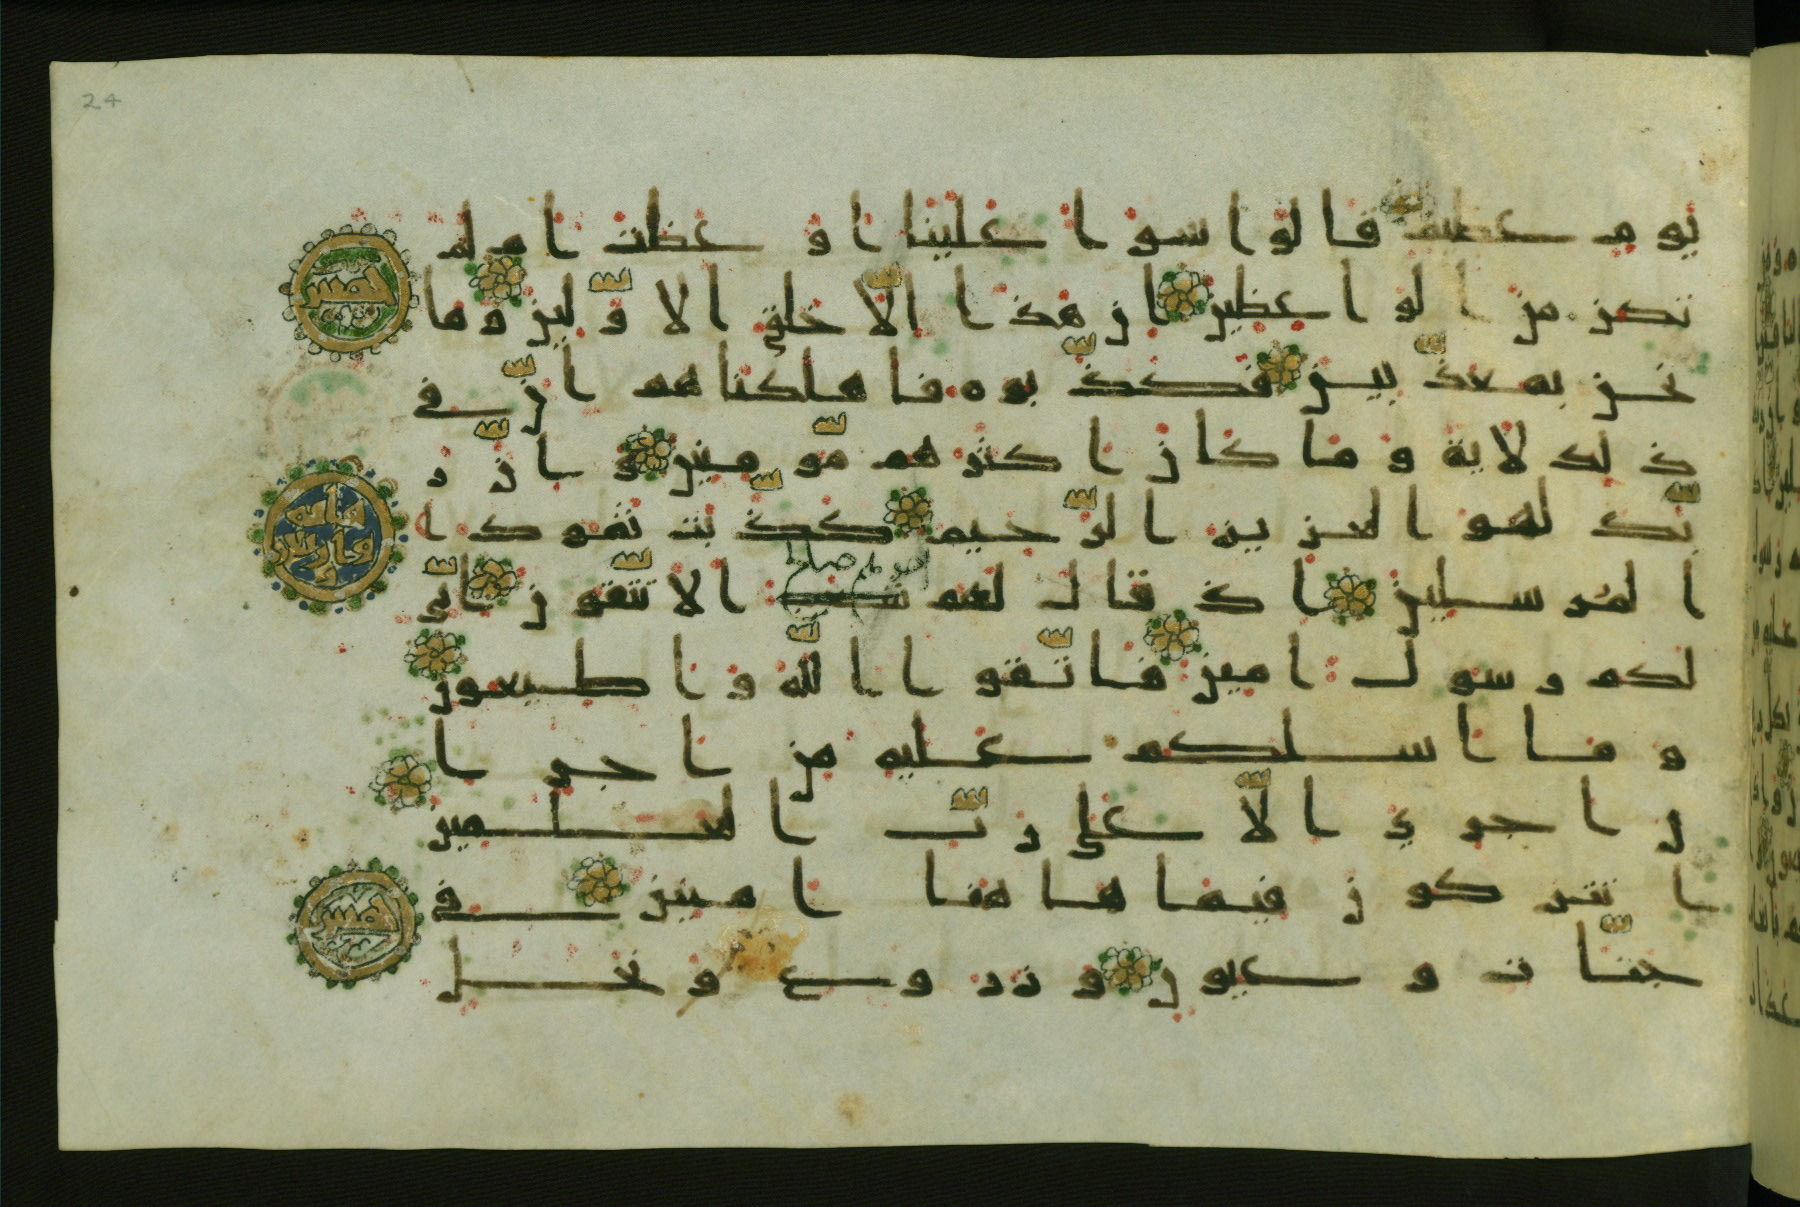 24
يوم عظيم قالوا سوا علينا اوعظت ام لم
تكن من الوعظين ان هذا الّا خلق الاوّلين وما
خمس
نحن بمعذّبين فكذّبوه فاهلكناهم انّ في
ذلك لاية وما كان اكثرهم مّومنين وانّ ر
بّك لهو العزيز الرّحيم كذّبت ثمود ا
مايه واربعون
اخوهم صلح
لمرسلين اذ قال لهم الا تتّقون انّي
لكم رسول امين فاتّقوا اللّه واطيعون
وما اسلكم عليه من اجر ا
ن اجري الّا على ربّ العلمين
اتتركون فيما هاهنا امنين في
خمس
جنّات وعيون وزروع ونخل